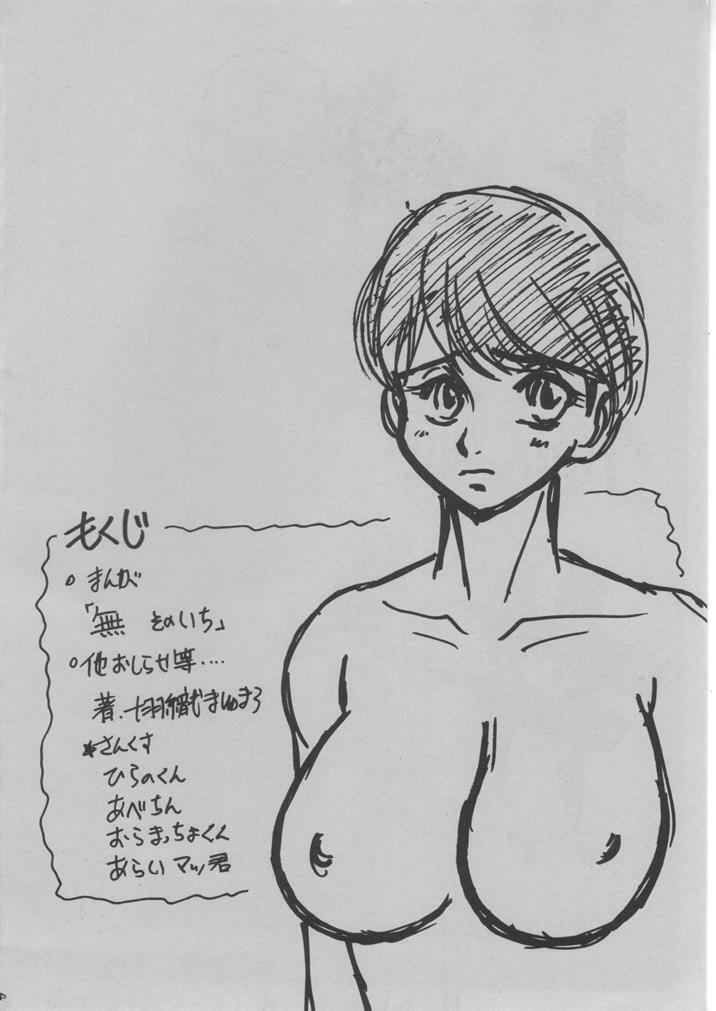 もくじ
○ まんが
「無 そのいち」
○他おしらせ等‥‥
著.十羽織ましゅまろ
*さんくす
ひらのくん
あべちん
むらまっちょくん
あらいマッハ君